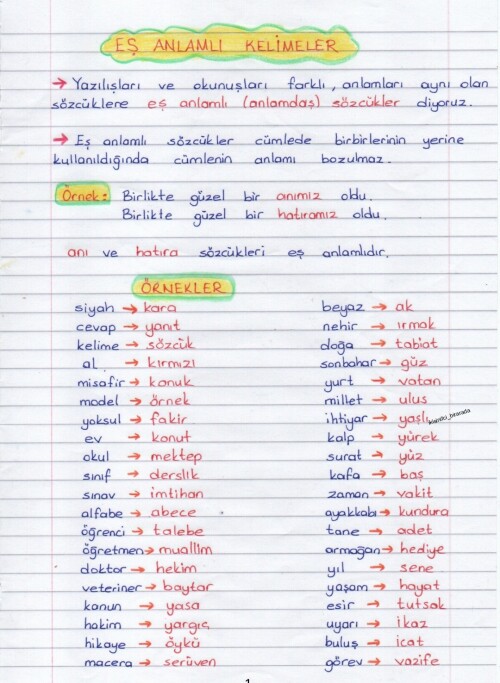 EŞ ANLAMLI KELİMELER
→ Yazılışları ve okunuşları farklı, anlamları aynı olan
sözcüklere eş anlamlı (anlamdaş) sözcükler diyoruz.
→ Eş anlamlı sözcükler cümlede birbirlerinin yerine
kullanıldığında cümlenin anlamı bozulmaz.
Örnek: Birlikte güzel bir anımız oldu.
Birlikte güzel bir hatıramız oldu.
anı ve hatıra sözcükleri eş anlamlıdır.
ÖRNEKLER
siyah → kara
cevap → yanıt
kelime → sözcük
al → kırmızı
misafir → konuk
model → örnek
yoksul → fakir
ev → konut
okul → mektep
sınıf → derslik
sınav → imtihan
alfabe → abece
öğrenci → talebe
öğretmen → muallim
doktor → hekim
veteriner → baytar
kanun → yasa
hakim → yargıç
hikaye → öykü
macera → serüven
beyaz → ak
nehir → ırmak
doğa → tabiat
sonbahar → güz
yurt → vatan
millet → ulus
ihtiyar → yaşlı
kalp → yürek
surat → yüz
kafa → baş
zaman → vakit
ayakkabı → kundura
tane → adet
armağan → hediye
yıl → sene
yaşam → hayat
esir → tutsak
uyarı → ikaz
buluş → icat
görev → vazife
1